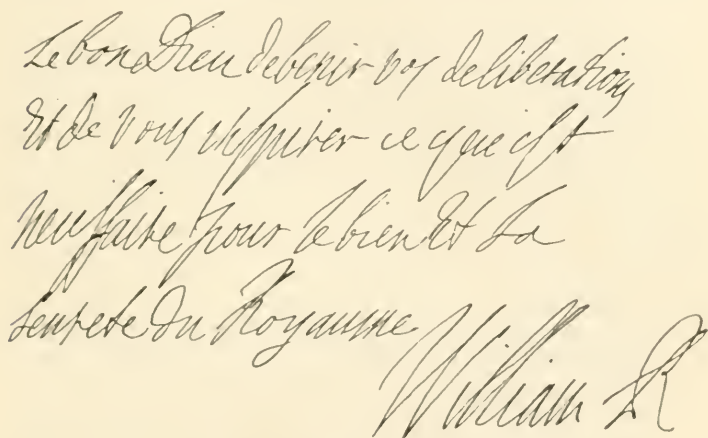 Le bon Dieu de benir vos deliberations
Et de vous inspirer ce que est
neussaire pour le bien Et La
seurete du Royaume
William R